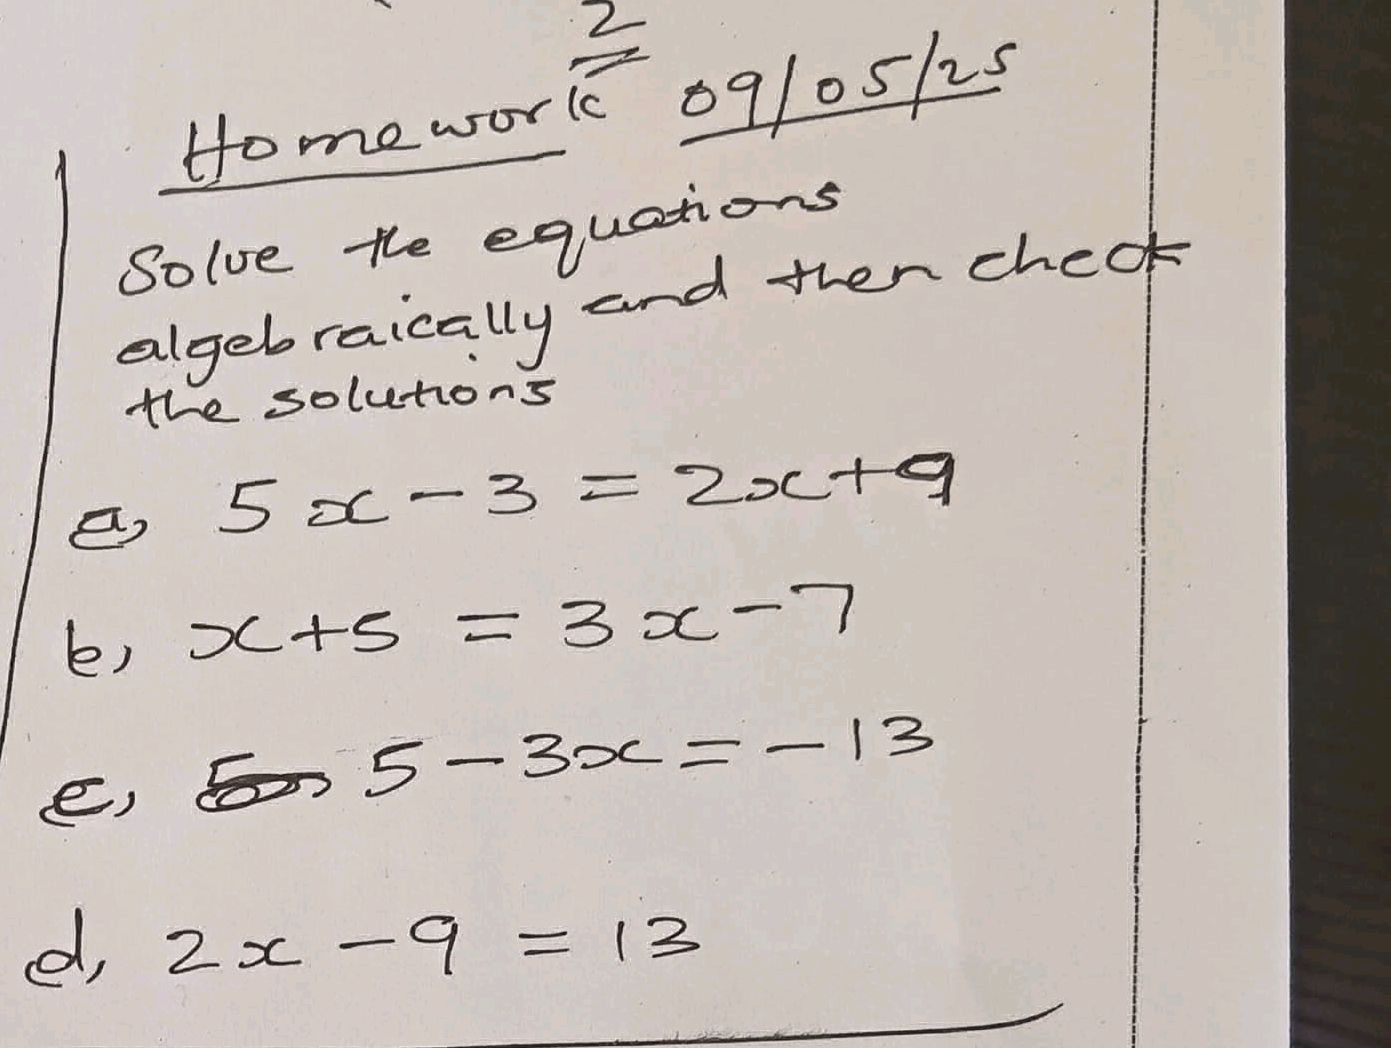 2
Homework 09/05/25
Solve the equations
algebraically and then check
the solutions
a, 5x - 3 = 2x + 9
b, x + 5 = 3x - 7
c, 5 - 3x = -13
d, 2x - 9 = 13